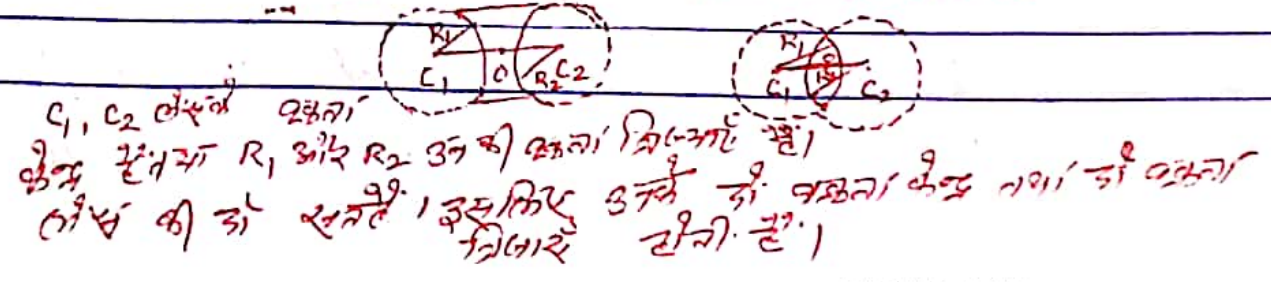 R₁ C₁ O R₂ C₂
R₁ O R₂ C₁ C₂
C₁, C₂ लेंसके वक्रता
केन्द्र हैं तथा R₁ और R₂ उन की वक्रता त्रिज्याएँ हैं।
लेंस की दो सतहें। इसलिए उनके दो वक्रता केन्द्र तथा दो वक्रता
त्रिज्याएं होती हैं।